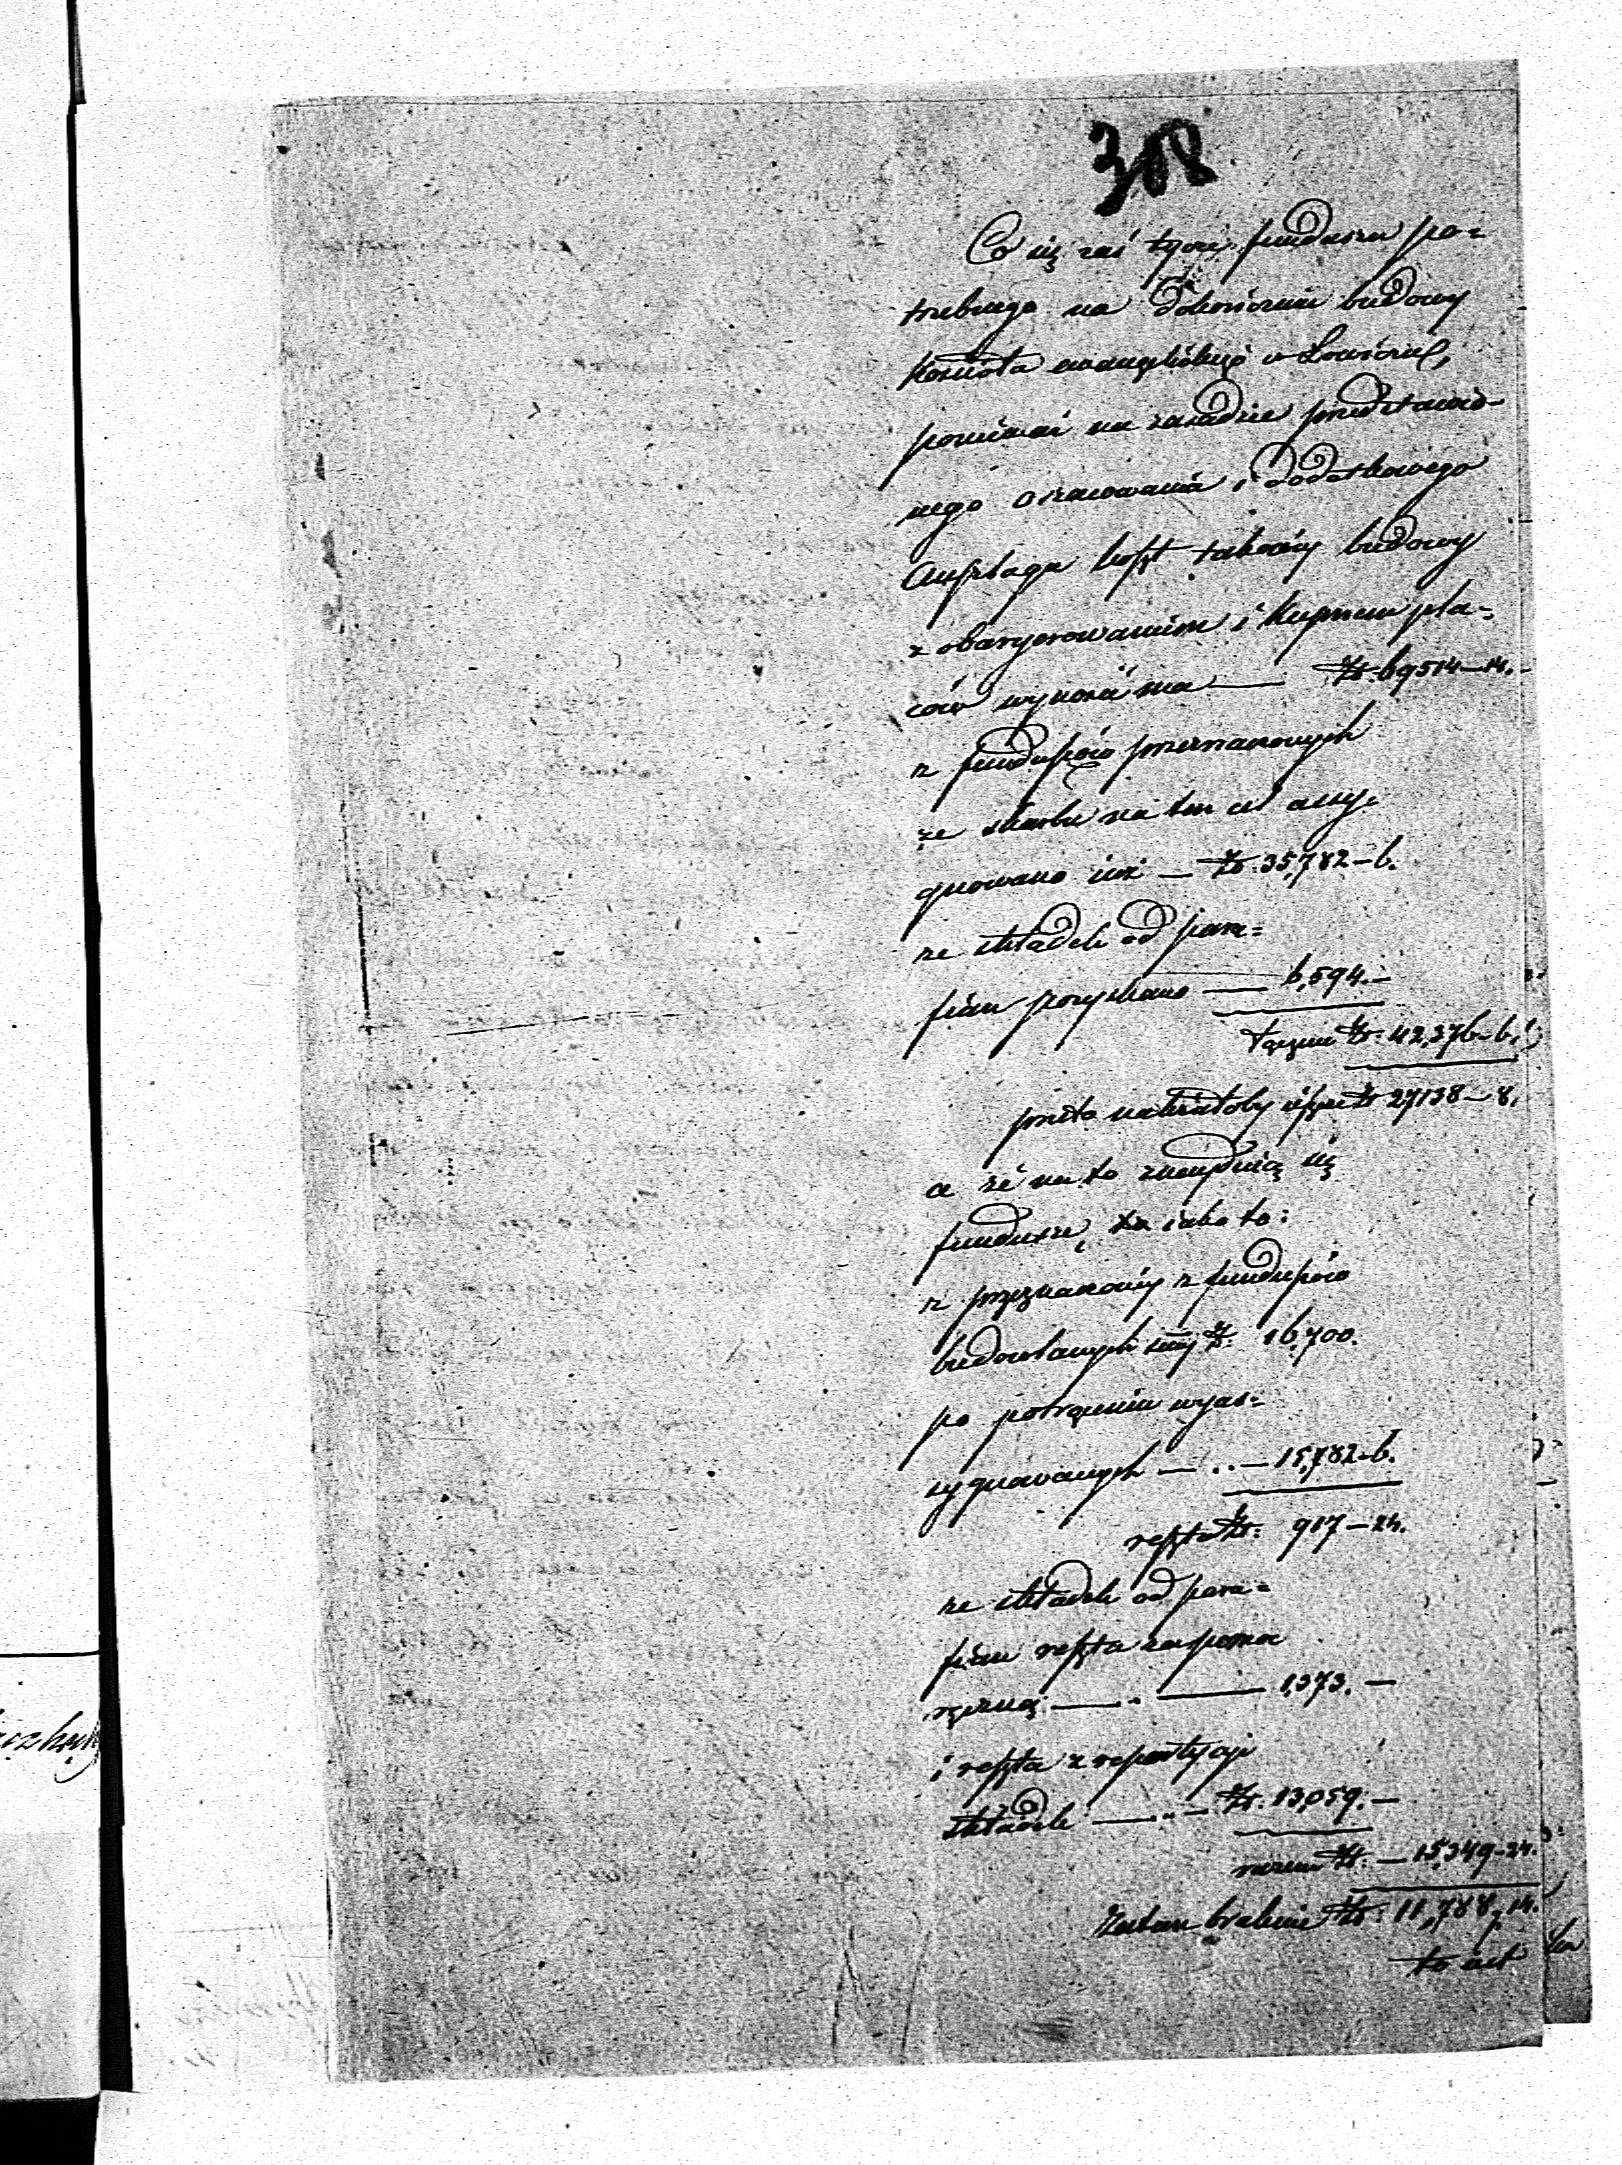 308
Co się zaś tycze funduszu po=
trzebnego na dokończenie budowy
Kościoła ewangelickiego w Łowiczu,
ponieważ na zasadzie przedstawio-
nego oszacowania i dodatkowego
Anszlagu koszt takowéy budowy
z obaryerowaniem i kupnem pla=
ców wynosić ma — Zł. 69514—14.
z funduszów przeznaczonych
ze skarbu na ten cel assy=
gnowano już — Zł. 35,782—6.
ze składek od para=
fian pozyskano — 6,594.—
łącznie Zł. 42,376—6.
przeto należałoby jeszcze Zł 27,138—8.
a że na to znayduią się
fundusze, to jako to:
z przeznaczonéy z funduszów
budowlanych summy Zł. 16,700.
po potrąceniu wyas=
sygnowanych — .. — 15,782—6.
reszta Zł: 917—24.
ze składek od para=
fian reszta zaspoko
ręczną — . — 1,373.—
i reszta z repartycyi
składek — .. — Zł. 13,059.—
razem Zł. — 15,349—24.
Zatem brakuie Zł. 11,788,14.
to iest